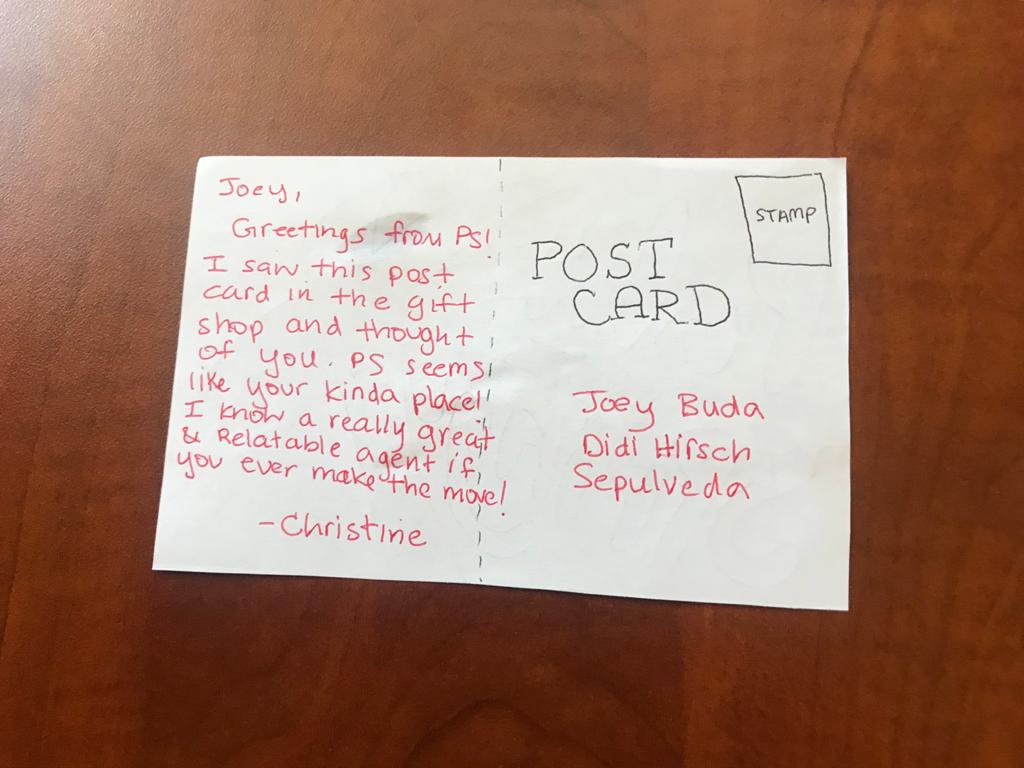 Joey,
Greetings from PS!
I saw this post
card in the gift
shop and thought
of you. PS seems
like your kinda place!
I know a really great
& Relatable agent if
you ever make the move!
-Christine
POST
CARD
STAMP
Joey Buda
Didi Hirsch
Sepulveda